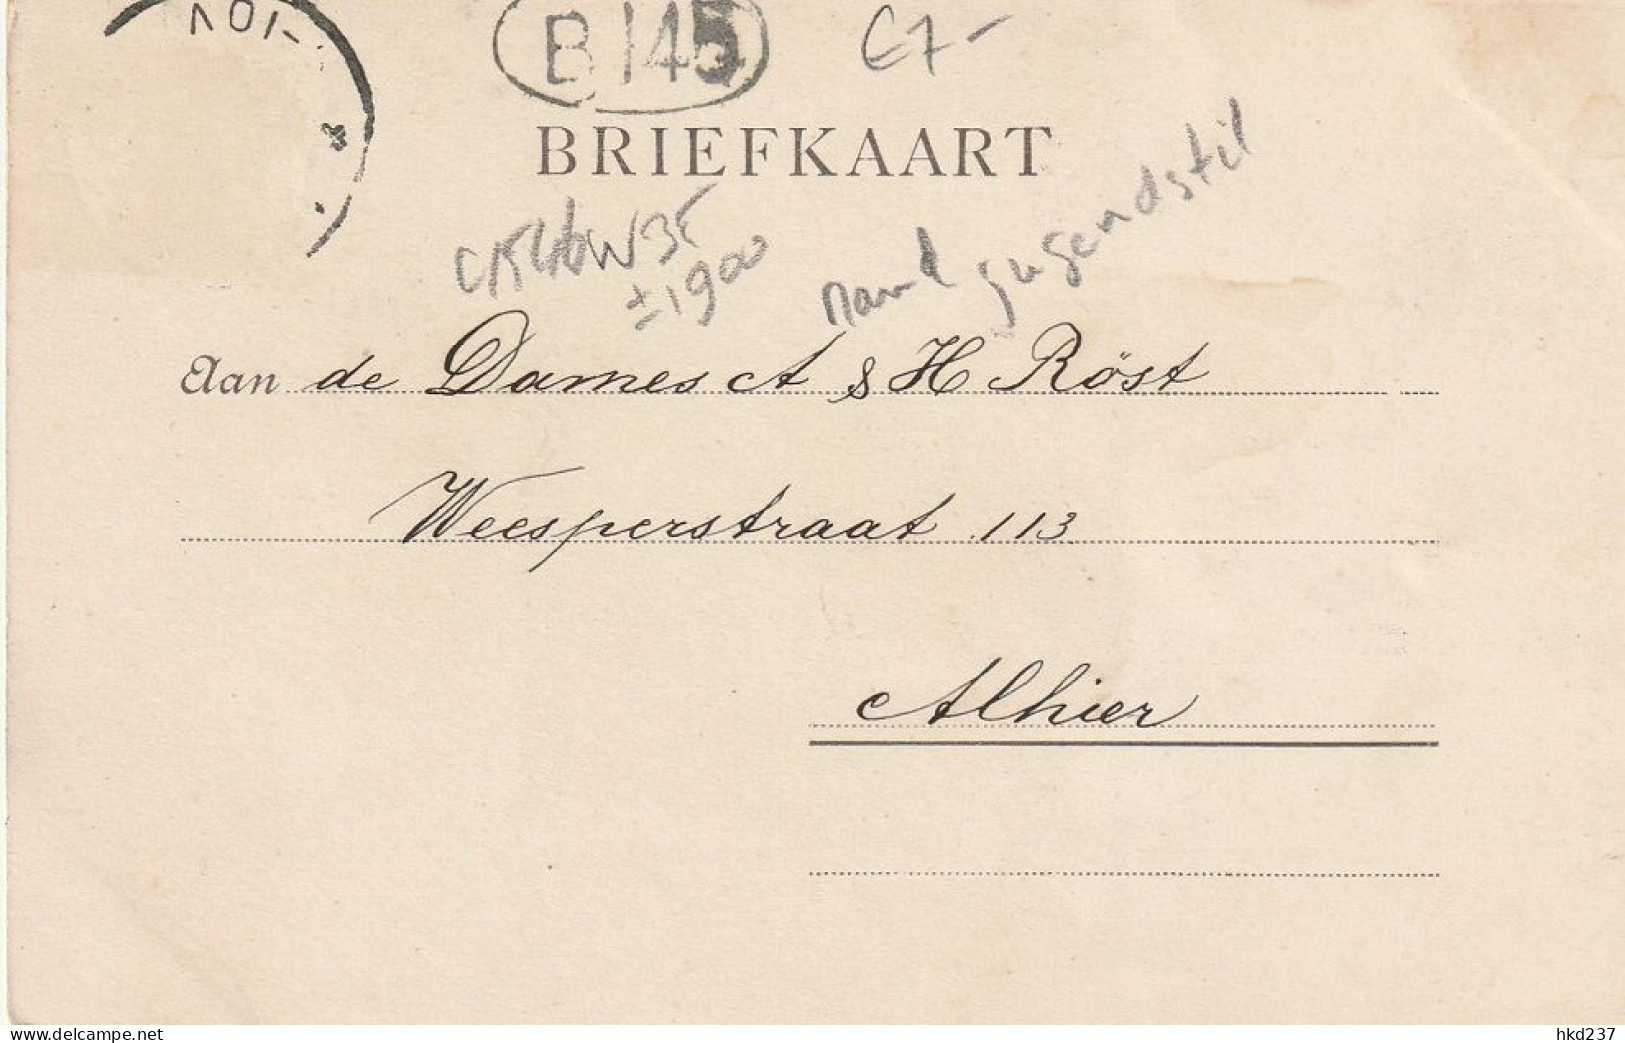 B 145
€7-
BRIEFKAART
±1900
jugendstil
Aan de Dames A & H Röst
Weesperstraat 113
Alhier
www.delcampe.net
hkd237